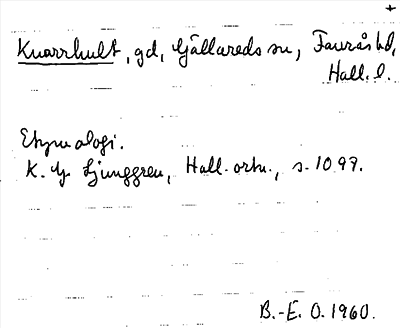 +
Knarrhult, gd, Gällareds sn, Faurås hd,
Hall. l.
Etymologi.
K. G. Ljunggren, Hall. ortn., s. 1099.
B.-E. O. 1960.